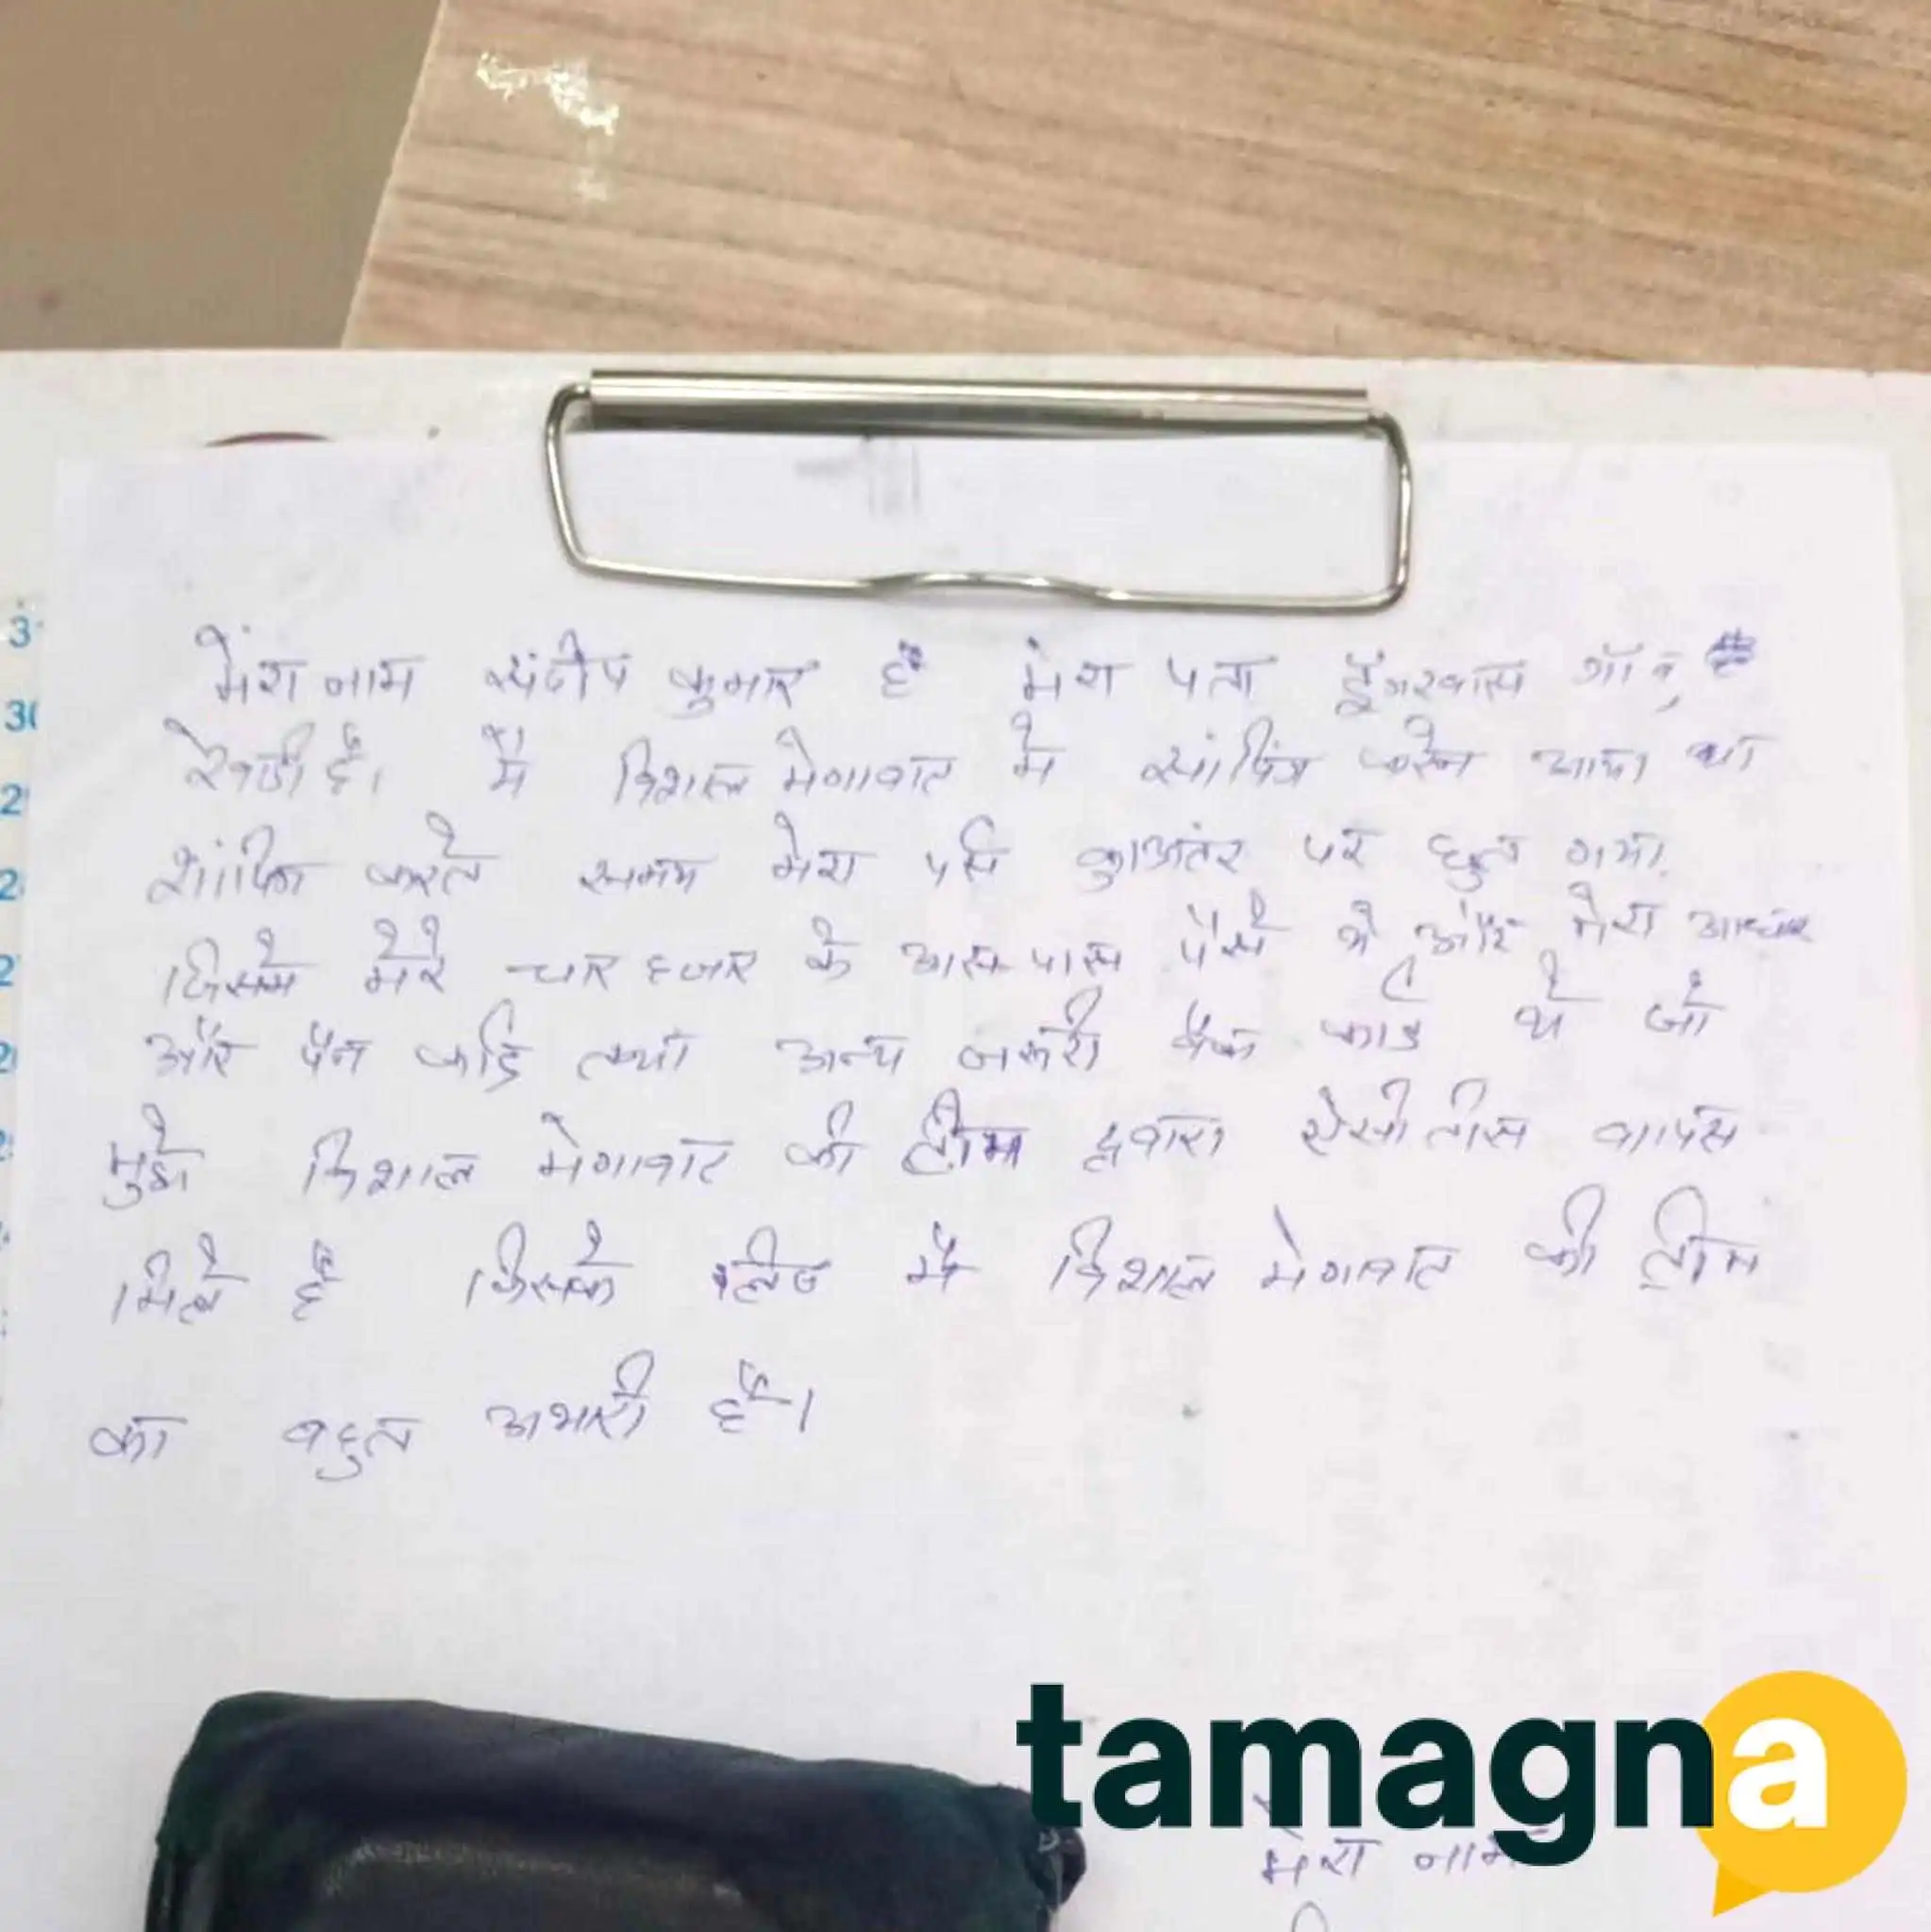 मेरा नाम संदीप कुमार है मेरा पता डूंगरवास गाँव,
रेवाडी है। मैं विशाल मेगामार्ट में शांपिंग करने आया था
शांपिंग करते समय मेरा पर्स काउंटर पर छुट गया
जिसमे मेरे चार हजार के आस-पास पैसे थे और मेरा आधार
और पैन कार्ड तथा अन्य जरूरी बैंक कार्ड थे जो
मुझे विशाल मेगामार्ट की टीम द्वारा वापस
मिले है जिसके लिए मैं विशाल मेगामार्ट की टीम
का बहुत अभारी हूँ।
मेरा नाम
tamagna
31
30
2
2
2
2